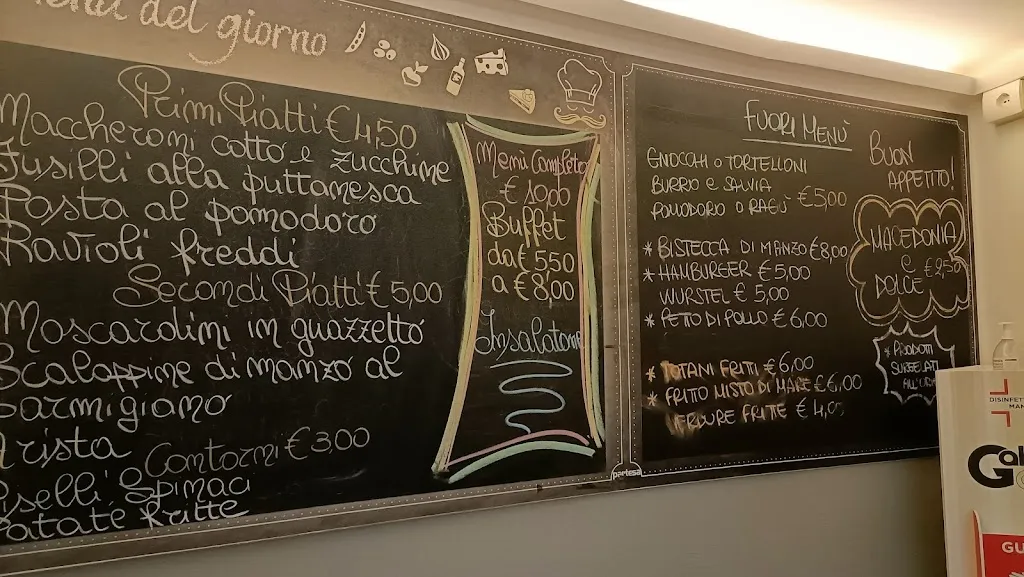 del giorno
Primi Piatti € 4,50
Maccheroni cotto e zucchine
Fusilli alla puttanesca
Pasta al pomodoro
Ravioli freddi
Secondi Piatti € 5,00
Moscardini in guazzetto
Scaloppine di manzo al
parmigiano
Arista
Contorni € 3,00
Piselli Spinaci
Patate fritte
Menù Completo
€ 10,00
Buffet
da € 5,50
a € 8,00
Insalatone
partesa
FUORI MENÙ
GNOCCHI O TORTELLONI
BURRO e SALVIA
POMODORO O RAGÙ € 5,00
* BISTECCA DI MANZO € 8,00
* HAMBURGER € 5,00
WURSTEL € 5,00
* PETTO DI POLLO € 6,00
* TOTANI FRITTI € 6,00
* FRITTO MISTO DI MARE € 6,00
VERDURE FRITTE € 4,00
BUON
APPETITO!
MACEDONIA
e
DOLCE € 2,50
* PRODOTTI
SURGELATI
DISINFET
MAN
GU